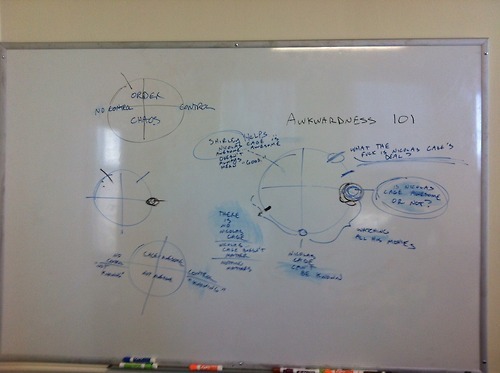 ORDER
NO CONTROL
CONTROL
CHAOS
AWKWARDNESS 101
SHIRLEY HELPS
NICOLAS CAGE IS
AWESOME
DOESN'T
ALWAYS
MEAN "GOOD"
WHAT THE
FUCK IS NICOLAS CAGE'S
DEAL?
IS NICOLAS
CAGE AWESOME
OR NOT?
WATCHING
ALL HIS MOVIES
NICOLAS
CAGE
CAN'T
BE KNOWN
THERE
IS NO
NICOLAS
CAGE
NICOLAS
CAGE DOESN'T
MATTER
NOTHING
MATTERS
NO
CONTROL
CONTROL